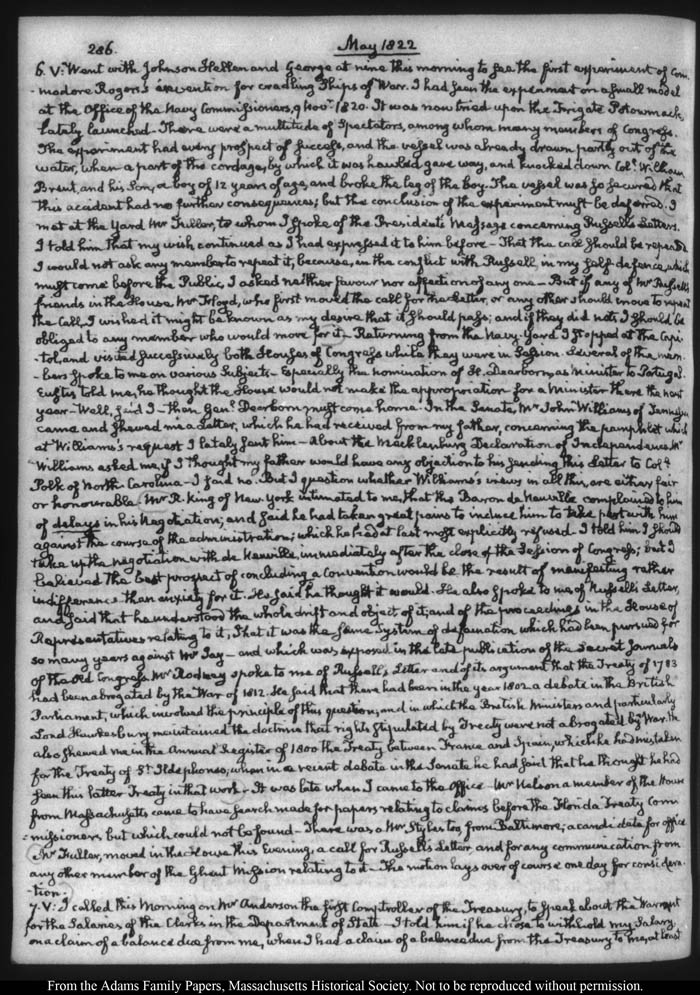 286.
May 1822
6. V: Went with Johnson Hellen and George at nine this morning to see the first experiment of Com-
-modore Rogers's invention for cradling Ships of War. I had seen the experiment on a small model
at the Office of the Navy Commissioners, 9 Novr. 1820. It was now tried upon the Frigate Potowmack,
lately launched. There were a multitude of Spectators, among whom many members of Congress.
The experiment had every prospect of success, and the vessel was already drawn partly out of the
water, when a part of the cordage, by which it was hawled gave way, and knocked down Coll. William
Brent, and his Son, a boy of 12 years of age, and broke the leg of the boy. The vessel was so secured that
this accident had no further consequences; but the conclusion of the experiment must be deferred. I
met at the Yard Mr Fuller, to whom I spoke of the President's Message concerning Russell's Letters.
I told him that my wish continued as I had expressed it to him before— That the call should be repeated
I would not ask any member to repeat it, because, in the conflict with Russell in my self-defence, which
must come before the Public, I asked neither favour nor affection of any one— But if any of Mr Russell's
friends in the House, Mr Floyd, who first moved the call for the Letter, or any other should move to repeat
the Call, I wished it might be known as my desire that it should pass; and if they did not, I should be
obliged to any member who would move for it— Returning from the Navy-Yard I stopped at the Capi-
-tol and visited successively both Houses of Congress while they were in Session. Several of the mem-
-bers spoke to me on various Subjects— Especially the nomination of H. Dearborn, as Minister to Portugal.
Eustis told me, he thought the House would not make the appropriation for a Minister there the next
year— Well, said I— then Genl. Dearborn must come home. In the Senate, Mr John Williams of Tennessee
came and shewed me a Letter, which he had received from my father, concerning the pamphlet which
at Williams's request I lately sent him— About the Mecklenburg Declaration of Independence. Mr
Williams asked me, if I thought my father would have any objection to his sending this Letter to Coll.
Polk of North-Carolina— I said no. But I question whether Williams's views in all this, are either fair
or honourable. Mr R. King of New York intimated to me, that the Baron de Neuville complained to him
of delays in his Negotiation; and said he had taken great pains to induce him to take part with him
against the course of the administration; which he had at last most explicitly refused. I told him I should
take up the negotiation with de Neuville, immediately after the close of the Session of Congress; but I
believed the best prospect of concluding a Convention would be the result of manifesting rather
indifference than anxiety for it. He said he thought it would. He also spoke to me of Russell's Letter,
and said that he understood the whole drift and object of it; and of the proceedings in the House of
Representatives relating to it, That it was the same System of defamation which had been pursued for
so many years against Mr Jay— and which was exposed in the late publication of the Secret Journals
of the old Congress. Mr Rodney spoke to me of Russell's Letter and of its argument that the Treaty of 1783
had been abrogated by the War of 1812. He said that there had been in the year 1802 a debate in the British
Parliament, which involved the principle of this question, and in which the British Ministers and particularly
Lord Hawkesbury maintained the doctrine that rights stipulated by Treaty were not abrogated by War. He
also shewed me in the Annual Register of 1800 the Treaty between France and Spain, which he had mistaken
for the Treaty of St. Ildephonso, when in a recent debate in the Senate he had said that he thought he had
seen this latter Treaty in that work. It was late when I came to the Office— Mr Nelson a member of the House
from Massachusetts came to have search made for papers relating to claims before the Florida Treaty Com-
-missioners but which could not be found— There was a Mr Styles too, from Baltimore; a candidate for office
Mr Fuller, moved in the House this Evening, a call for Russell's Letter, and for any communication from
any other member of the Ghent Mission relating to it— The motion lays over of course one day for considera-
-tion.
7. V: I called this Morning on Mr Anderson the first Comptroller of the Treasury, to speak about the Warrant
for the Salaries of the Clerks in the Department of State— I told him if he chose to withhold my Salary,
on a claim of a balance due from me, when I had a claim of a balance due from the Treasury to me, at least
From the Adams Family Papers, Massachusetts Historical Society. Not to be reproduced without permission.